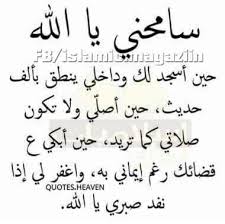 سامحني يا الله
FB/islamicmagaziin
حين أسجد لك وداخلي ينطق بألف
حديث، حين أصلّي ولا تكون
صلاتي كما تريد، حين أبكي ع
قضائك رغم إيماني به، واغفر لي إذا
نفد صبري يا الله.
QUOTES.HEAVEN